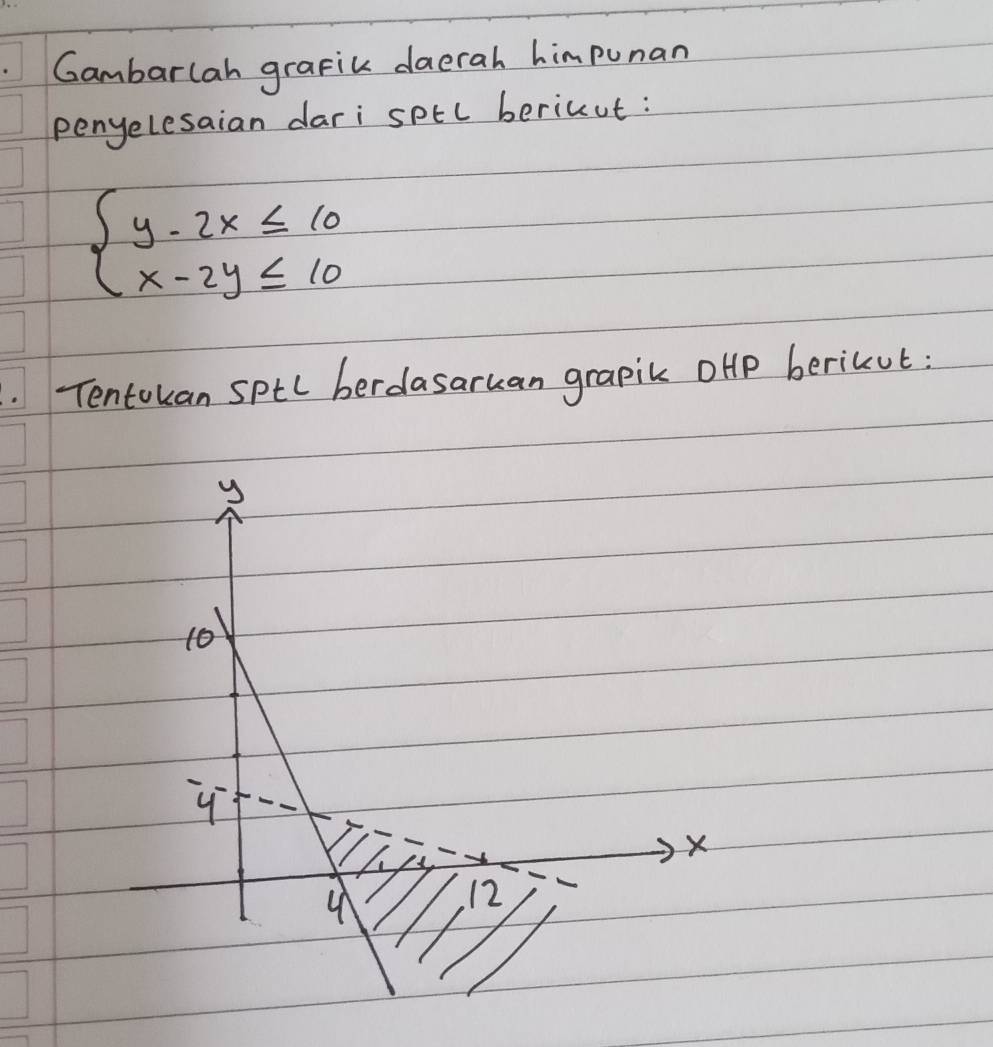 . Gambarlah grafik daerah himpunan
penyelesaian dari sptl berikut:
{ y - 2x ≤ 10
x - 2y ≤ 10
. Tentukan sptl berdasarkan grapik DHP berikut:
y
10
4
x
4
12